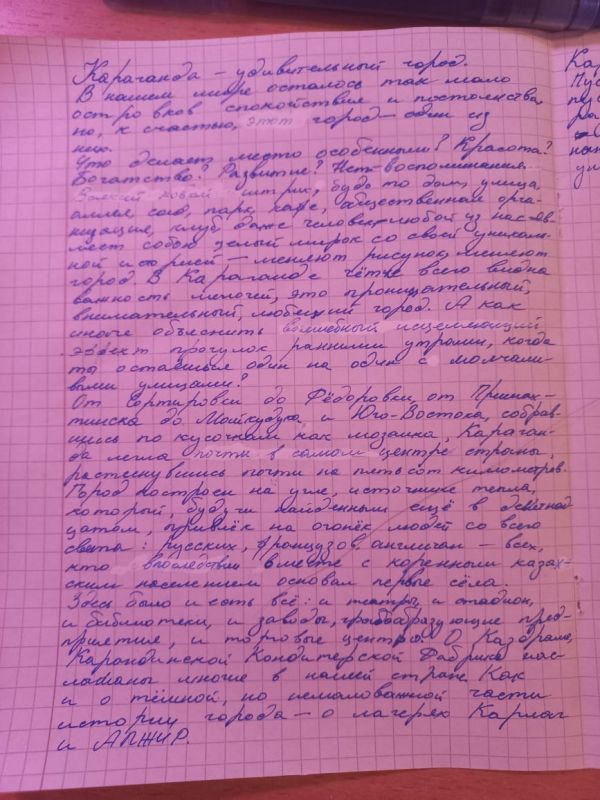 Караганда – удивительный город.
В нашем мире осталось так мало
островков спокойствия и постоянства,
но, к счастью, этот город – один из
них.
Что делает место особенными? Красота?
Богатство? Развитие? Нет – воспоминания.
новый штрих, будь то дом, улица
аллея, сад, парк, кафе, общественная орга-
низация, клуб, даже человек – любой из нас яв-
ляет собой целый мирок со своей уникаль-
ной историей – меняют рисунок, меняют
город. В Караганде чётче всего видна
важность мелочей, это проницательный,
внимательный, любящий город. А как
иначе объяснить волшебный исцеляющий
эффект прогулок ранними утрами, когда
ты остаёшься один на один с молчали-
выми улицами?
От Сортировки до Фёдоровки, от Пришах-
тинска до Майкудука, и Юго-Востока, собрав-
шись по кусочкам как мозаика, Караган-
да легла почти в самом центре страны,
растянувшись почти на пятьсот километров.
Город построен на угле, источнике тепла,
который, будучи найденным ещё в девятнад-
цатом, привлёк на огонёк людей со всего
света: русских, французов, англичан – всех,
кто впоследствии вместе с коренным казах-
ским населением основал первые сёла.
Здесь было и есть всё: и театры, и стадион,
и библиотеки, и заводы, градообразующие пред-
приятия, и торговые центры. О
Карандинской Кондитерской Фабрике нас-
лышаны многие в нашей стране. Как
и о тёмной, но немаловажной части
истории города – о лагерях Карлаг
и АЛЖИР.
Кар
Пус